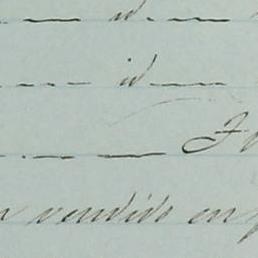 id
id
vendido en